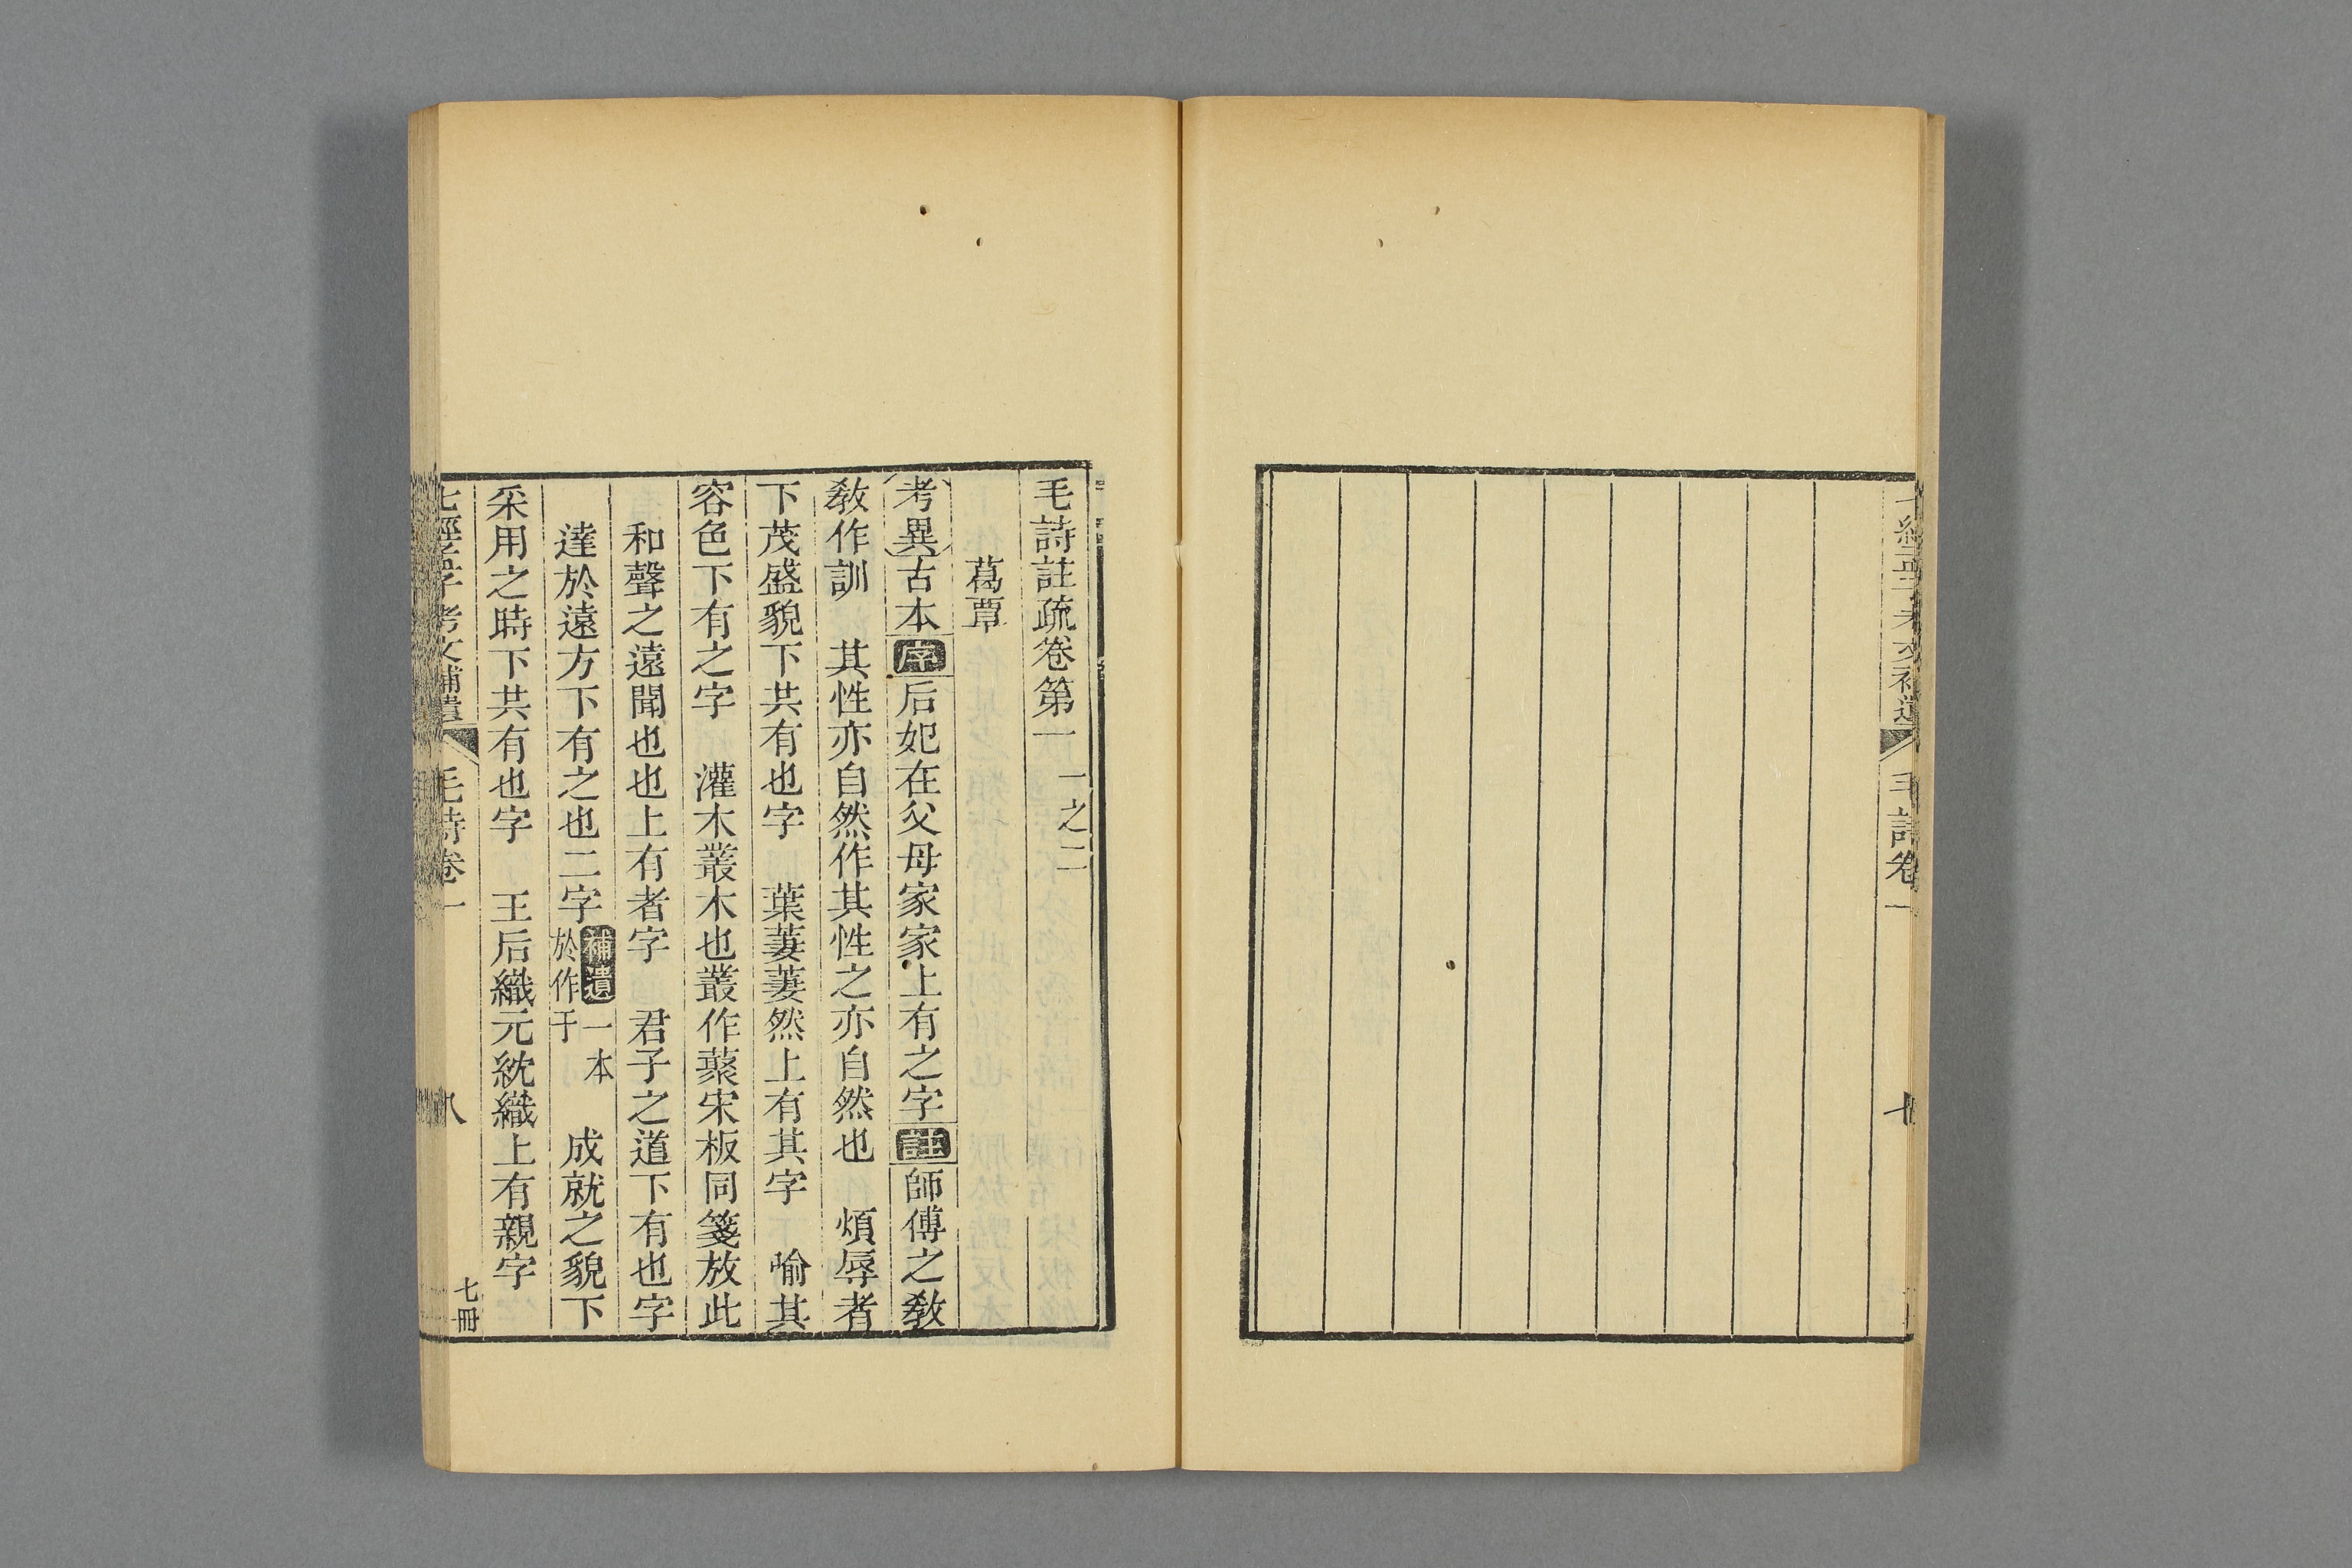 七經孟子考文補遺 毛詩卷一 七
毛詩註疏卷第一 一之二
葛覃
考異古本序后妃在父母家家上有之字註師傅之敎
敎作訓 其性亦自然作其性之亦自然也 煩辱者
下茂盛貌下共有也字 葉萋萋然上有其字 喻其
容色下有之字 灌木叢木也叢作藂宋板同箋放此
和聲之遠聞也也上有者字 君子之道下有也字
達於遠方下有之也二字補遺一本於作于 成就之貌下
采用之時下共有也字 王后織元紞織上有親字
七經孟子考文補遺 毛詩卷一 八 七冊